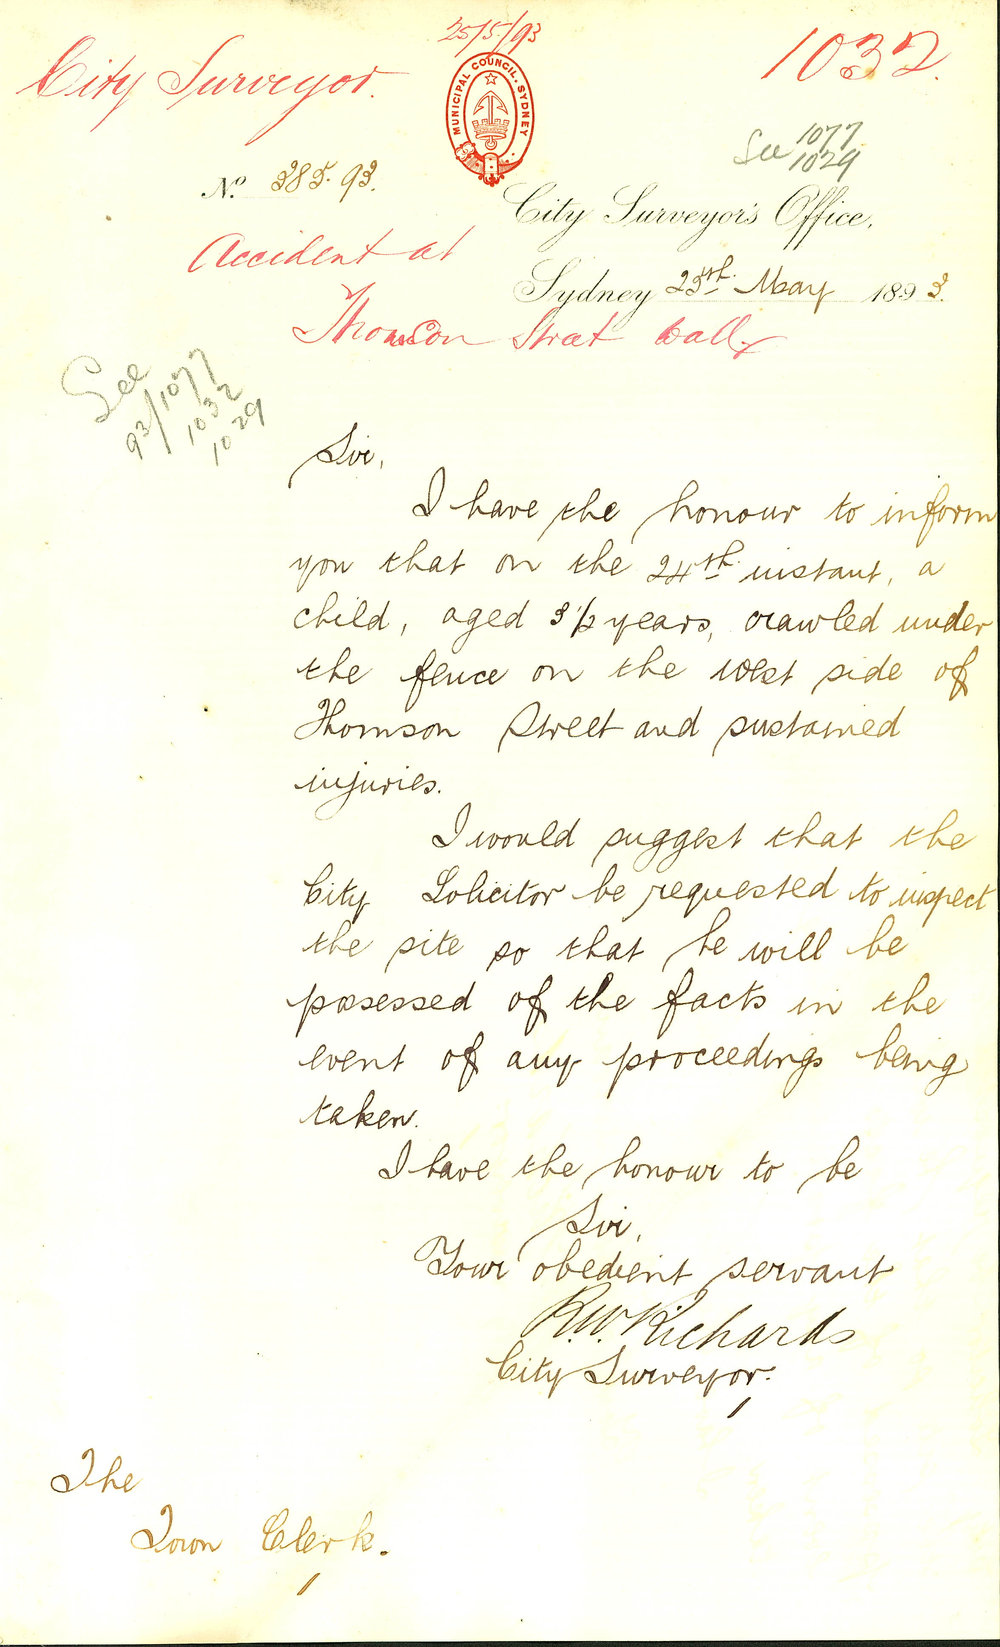 25/5/93
City Surveyor.
1032.
MUNICIPAL COUNCIL. SYDNEY
See 1077
1029
No. 385.93.
City Surveyor's Office,
Accident at
Sydney 25th May 1893.
Thomson Street
See
93/1077
1032
1029
Sir,
I have the honour to inform
you that on the 24th instant, a
child, aged 3 1/2 years, crawled under
the fence on the West side of
Thomson Street and sustained
injuries.
I would suggest that the
City Solicitor be requested to inspect
the site so that he will be
possessed of the facts in the
event of any proceedings being
taken.
I have the honour to be
Sir,
Your obedient servant
R.W. Richards
City Surveyor.
The
Town Clerk.